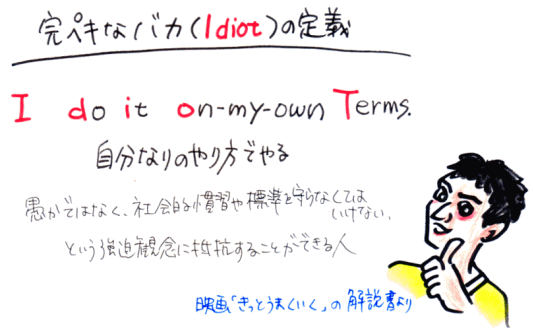 完ペキなバカ(Idiot)の定義
I do it on-my-own Terms.
自分なりのやり方でやる
愚かではなく、社会的慣習や標準を守らなくては
いけない、
という強迫観念に抵抗することができる人
映画「きっとうまくいく」の解説書より